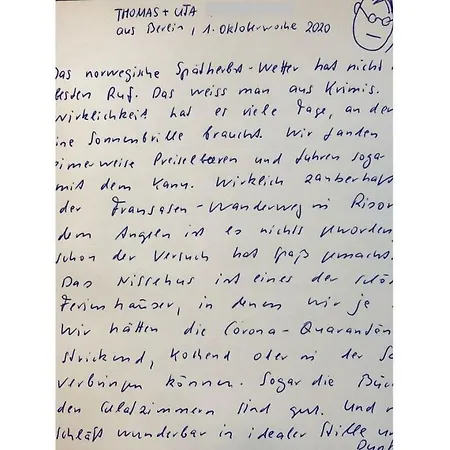 THOMAS + UTA
aus Berlin, 1. Oktoberwoche 2020
Das norwegische Spätherbst-Wetter hat nicht
besten Ruf. Das weiss man aus Krimis.
Wirklichkeit hat es viele Tage, an den
ine Sonnenbrille braucht. Wir fanden
eimerweise Preiselbeeren und fuhren sogar
mit dem Kanu. Wirklich zauberhaft
der Fransåsen-Wanderweg in Risør
dem Angeln ist es nichts geworden,
schon der Versuch hat Spaß gemacht.
Das Nissehus ist eines der schö
Ferienhäuser, in denen wir je
Wir hätten die Corona-Quarantän
strickend, kochend oder in der Sa
verbringen können. Sogar die Büc
den Schlafzimmern sind gut. Und
schläft wunderbar in idealer Stille un
Dunk